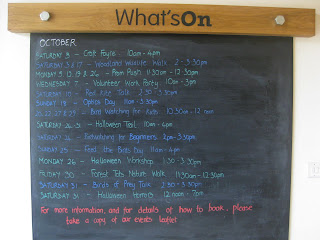 What's On
OCTOBER
SATURDAY 3 - Craft Fayre 10am - 4pm
SATURDAY 3 & 17 - Woodland Wildlife Walk 2 - 3:30pm
MONDAY 5, 12, 19 & 26 - Pram Push 11:30am - 12:30pm
WEDNESDAY 7 - Volunteer Work Party 10am - 3pm
SATURDAY 17 - Red Kite Talk 2:30 - 3:30pm
SUNDAY 18 - Optics Day 11am - 3:30pm
Bird Watching for Kids 10:30am - 12 noon
SATURDAY Halloween Trail 10am - 4pm
SATURDAY 24 - Birdwatching for Beginners 2pm - 3:30pm
SUNDAY 25 - Feed the Birds Day 11am - 4pm
MONDAY 26 - Halloween Workshop 1:30 - 3:30pm
FRIDAY 30 - Forest Tots Nature Walk 11:30am - 12:30pm
SATURDAY 31 - Birds of Prey Talk 2:30 - 3:30pm
SATURDAY 31 - Halloween Horrors 12 noon - 7pm
For more information, and for details of how to book, please
take a copy of our events leaflet